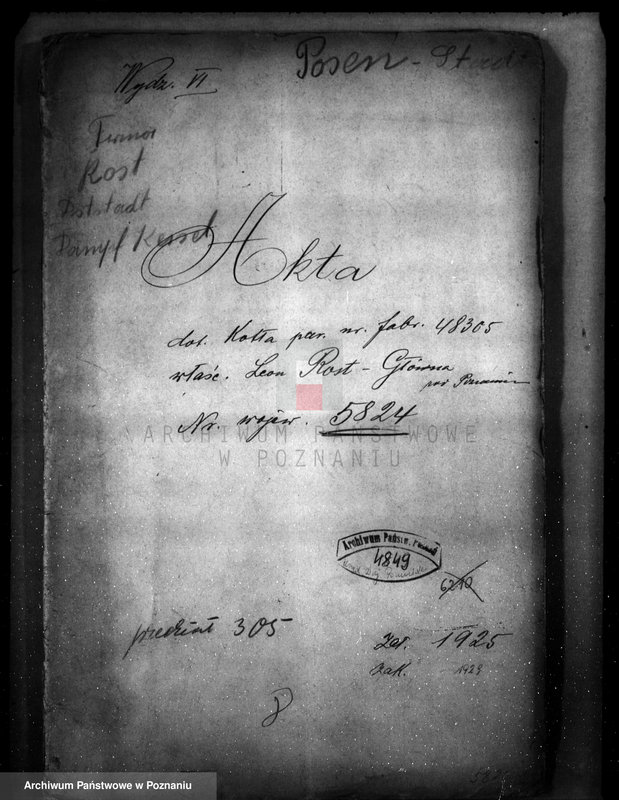 Posen - Stadt
Wydz. VI
Rost
Oststadt
Dampf Kessel
Akta
dot. Kotła par. nr. fabr. 48305
właśc. Leon Rost - Główna
pod Poznaniem
Nr. wojew. 5824
ARCHIWUM PAŃSTWOWE
W POZNANIU
Archiwum Państw. Poznań
4849
6210
przedział 305
Zał. 1925
Zak. 1929
Archiwum Państwowe w Poznaniu